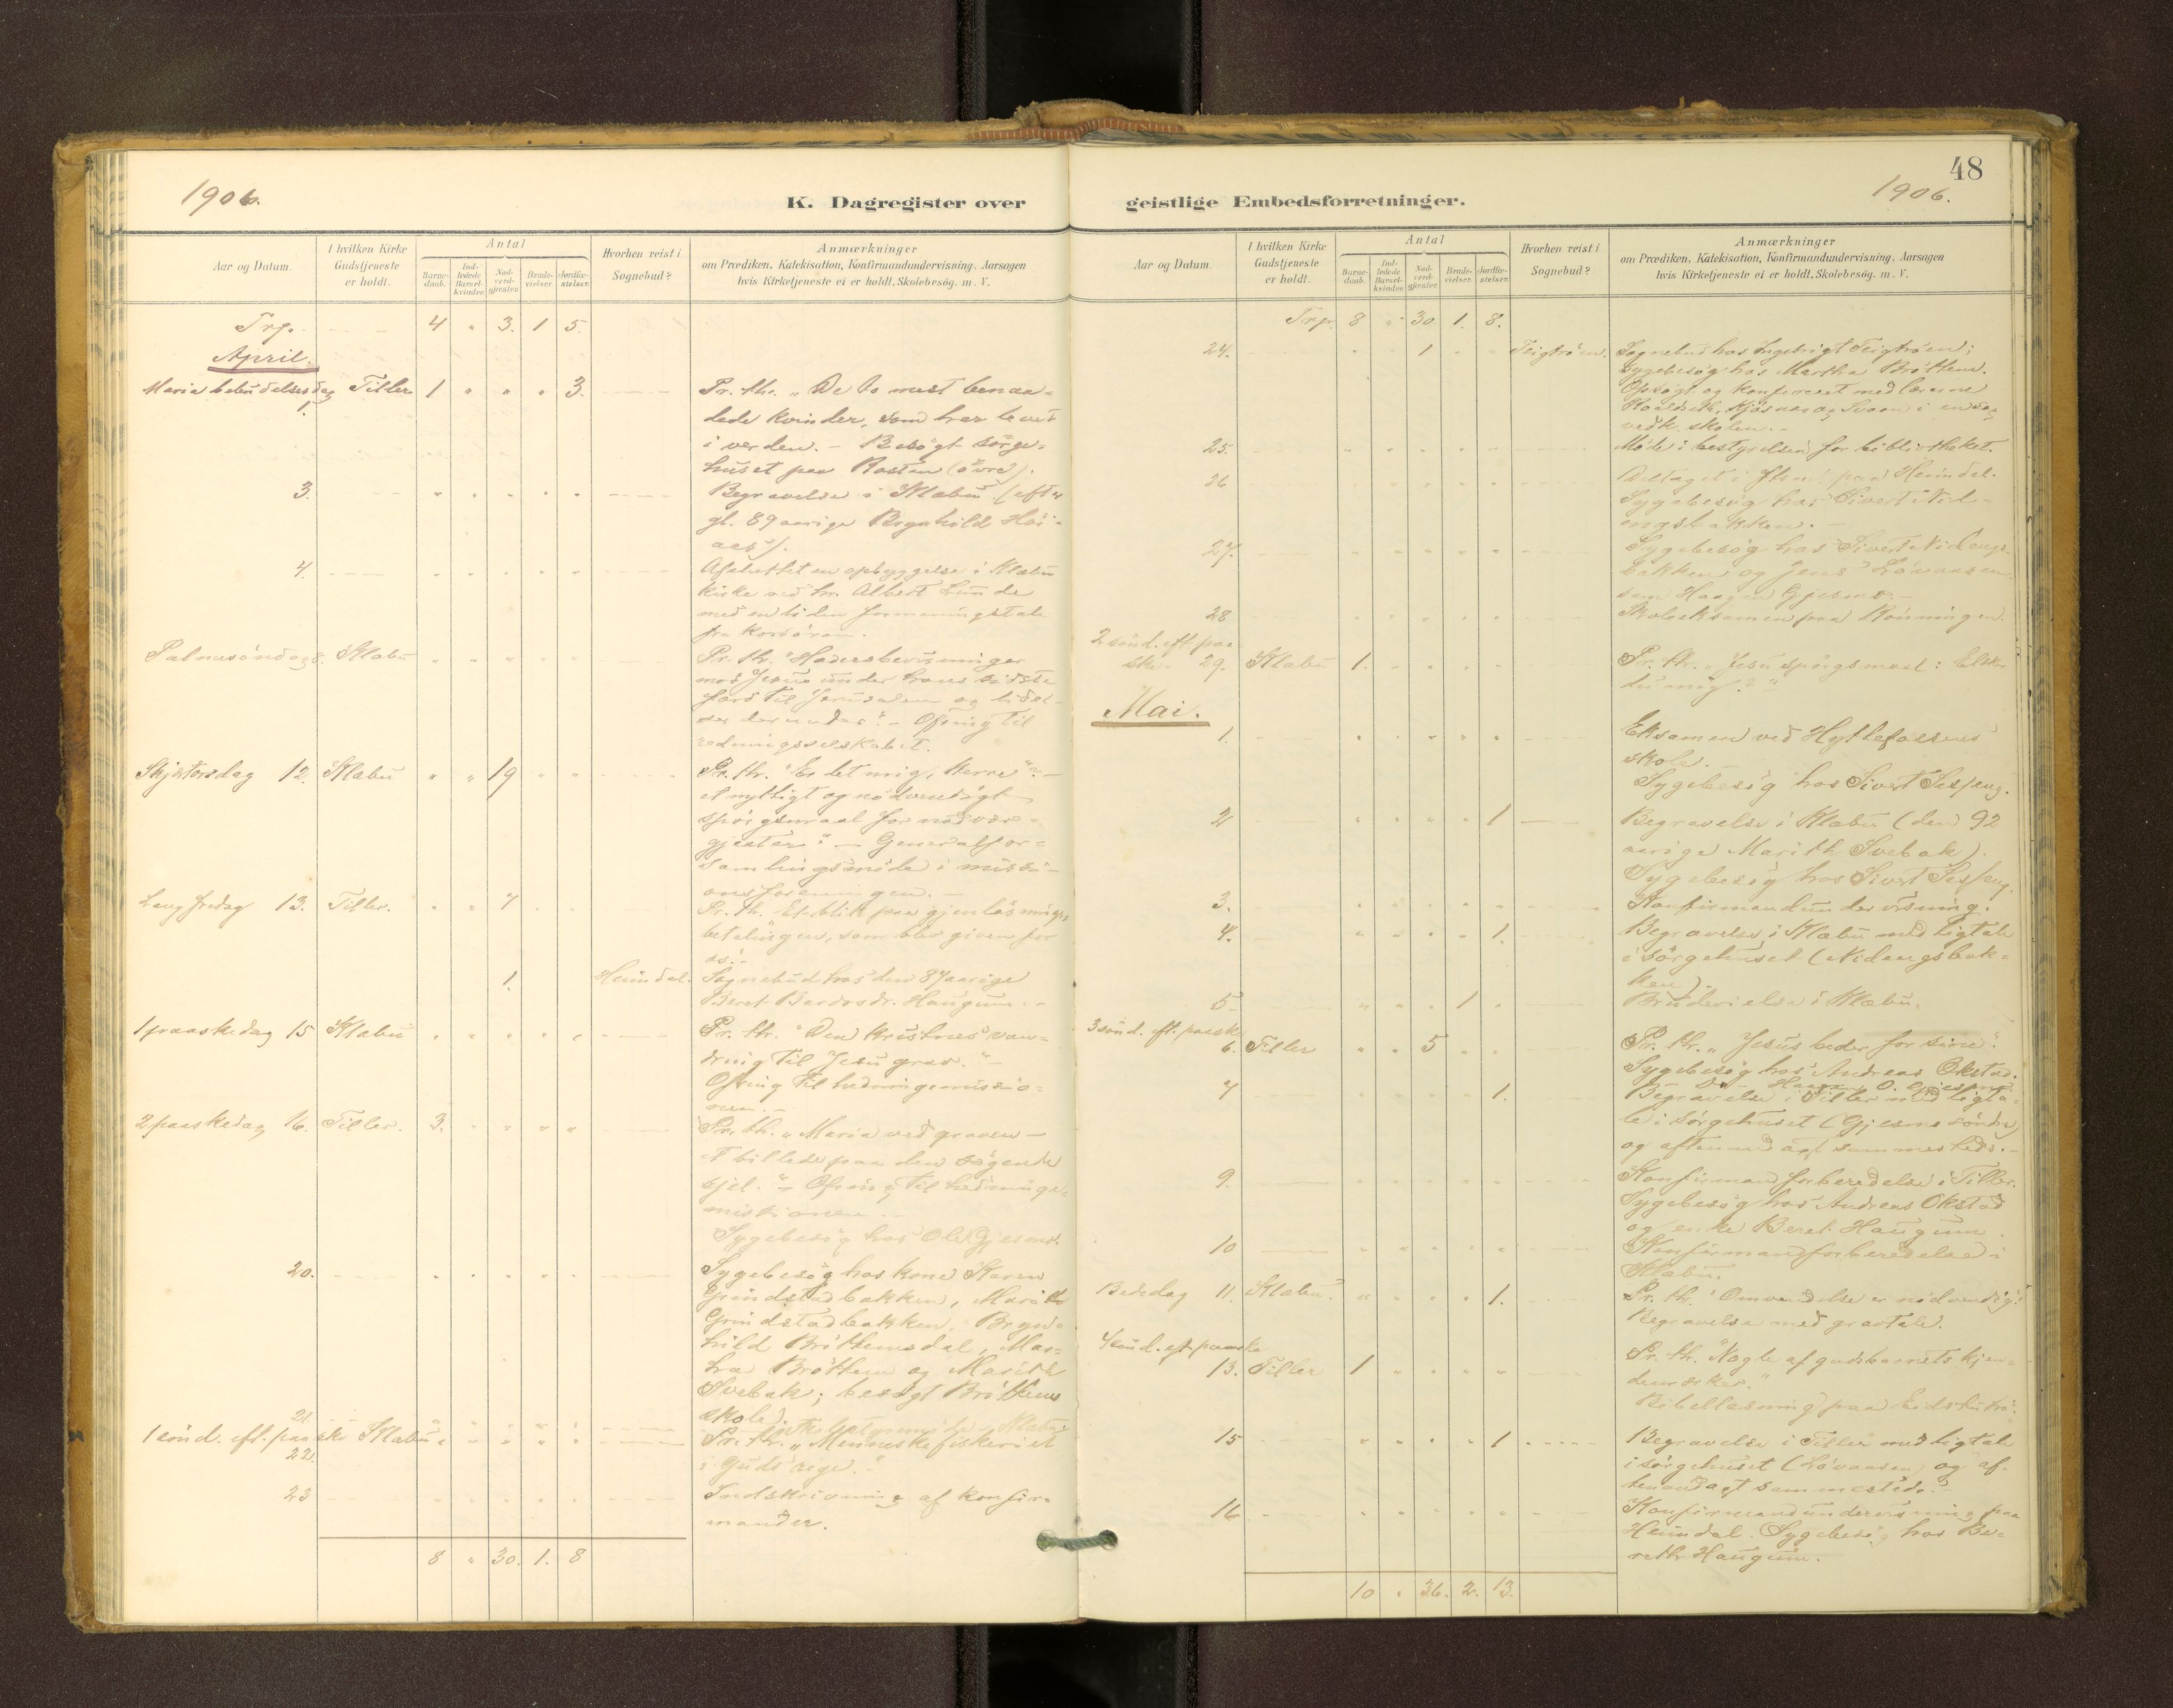 1906.
K. Dagregister over
Aar og Datum.
I hvilken Kirke Gudstjeneste er holdt.
Antal
Barne-daab.
Ind-ledede Barsel-kvinder.
Nad-verd-gjester.
Brude-vielser.
Jordfæ-stelser.
Hvorhen reist i Sognebud?
Anmærkninger
om Prædiken. Katekisation, Konfirmandundervisning. Aarsagen
hvis Kirketjeneste ei er holdt. Skolebesøg. m. V.
Trp. 4 " 3. 1 5.
April.
Maria bebudelsesdag 1. Tiller 1 " " " 3. Pr. th. "De to mest benaa-
dede kvinder, som har levet
i verden. - Besøgt sørge-
huset paa Rosten (øvre).
3. Begravelse i Klæbu (efter
gl. 89 aarige Brynhild
4. Afsluttet en opbyggelse i Klæbu
kirke ved hr. Albert Lunde
med en liden formaningstale
fra kordøren.
Palmesøndag 8. Klæbu Pr. th. "Hadersbevisninger
mod Jesus under hans sidste
færd til Jerusalem og lidel-
ser derunder". - Ofring til
redningsselskabet.
Skjærtorsdag 12. Klæbu " " 19 " " Pr. th. "Er det mig, Herre" -
et nyttigt og nødvendigt
spørgsmaal for nadver-
gjester". - Generalfor-
samlingsmøde i missi-
onsforeningen. -
Langfredag 13. Tiller. " " 7 Pr. th. Et blik paa gjenløsnings-
betalingen, som blev given for
os". -
1. Heimdal. Sognebud hos den 87 aarige
Beret Bardosdr. Haugum. -
1 paaskedag 15 Klæbu Pr. th. "Den kristnes van-
dring til Jesu grav." -
Ofring til hedningemissio-
nen. -
2 paaskedag 16. Tiller. 3. Pr. th. "Maria ved graven -
et billede paa den søgende
sjel." - Ofring til hedninge-
missionen. -
Sygebesøg hos Ole Gjesmo.
20. Sygebesøg hos kone Karen
Grindstadbakken, Marith
Grindstadbakken, Bryn-
hild Brøttemsdal, Mar-
tha Brøttem og Marith
Svebak; besøgt Brøttems
skole.
21.
1 sønd. eft. paaske 22. Klæbu Pr. th. "Menneskefiskeriet
i Guds rige." -
23 Indskrivning af konfir-
mander.
8 " 30. 1. 8
48
1906.
geistlige Embedsforretninger.
Aar og Datum.
I hvilken Kirke Gudstjeneste er holdt.
Antal
Barne-daab.
Ind-ledede Barsel-kvinder.
Nad-verd-gjester.
Brude-vielser.
Jordfæ-stelser.
Hvorhen reist i Sognebud?
Anmærkninger
om Prædiken. Katekisation, Konfirmandundervisning. Aarsagen
hvis Kirketjeneste ei er holdt. Skolebesøg. m. V.
Trp. 8 " 30. 1. 8.
24. 1 Teigtrøen. Sognebud hos Ingebrigt Teigtrøen;
sygebesøg hos Martha Brøttem.
Opsøgt og konfereret med lærerne
i en sag
vedk. skolen. -
25. Møde i bestyrelsen for bibliotheket.
26 Deltaget i paa Heimdal.
Sygebesøg hos Sivert Nid-
engsbakken. -
27. Sygebesøg hos Sivert Nidengs-
bakken og Jens Løvaasen
samt Haagen Gjesmo. -
28 Skoleeksamen paa Rønningen.
2 sønd. eft. paa-
ske. 29. Klæbu 1. Pr. th. "Jesu spørgsmaal: Elsker
du mig?"
Mai.
1. Eksamen ved Hyttefossens
skole.
Sygebesøg hos Sivert Seljeng.
2 1 Begravelse i Klæbu (den 92
aarige Marith Svebak).
Sygebesøg hos Sivert Seljeng.
3. Konfirmandundervisning.
4. 1. Begravelse i Klæbu med ligtale
i sørgehuset (Nidengsbak-
ken).
5 1 Brudevielse i Klæbu.
3 sønd. eft. paaske
6. Tiller 5 Pr. th. "Jesus beder for sine".
Sygebesøg hos Andreas Okstad.
- Do - Haagen O. Gjesmo
7 1. Begravelse i Tiller med ligta-
le i sørgehuset (Gjesmo søndre)
og aftenandagt sammesteds. -
9. Konfirmandforberedelse i Tiller.
Sygebesøg hos Andreas Okstad
og enke Beret Haugum.
10 Konfirmandforberedelse i
Klæbu.
Bededag 11. Klæbu. 1. Pr. th. "Omvendelse er nødvendig".
Begravelse med gravtale.
4 sønd. eft. paaske
13. Tiller 1 Pr. th. "Nogle af gudsbarnets kjen-
demærker."
Bibellæsning paa
15 1 Begravelse i Tiller med ligtale
i sørgehuset (Løvaasen) og af-
tenandagt sammesteds. -
16 Konfirmandundervisning paa
Heimdal. Sygebesøg hos Be-
reth Haugum. -
10 " 36. 2. 13.